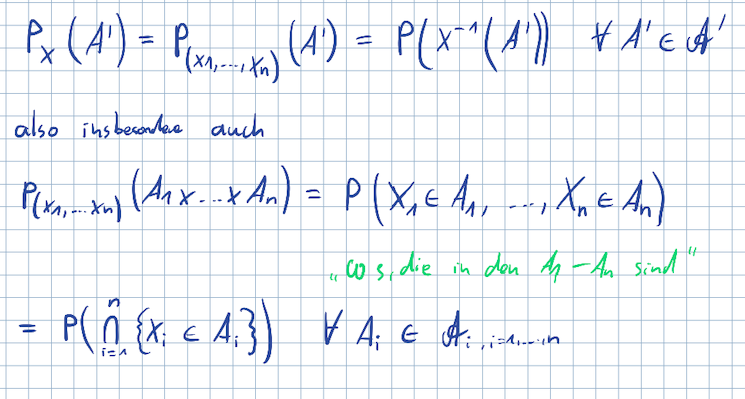 P_X (A') = P_(X1,...,Xn) (A') = P(X⁻¹(A')) ∀ A' ∈ 𝒜'
also insbesondere auch
P_(X1,...Xn) (A₁ x ... x Aₙ) = P(X₁ ∈ A₁, ..., Xₙ ∈ Aₙ)
„ω s, die in den A₁ – Aₙ sind"
= P(⋂ᵢ₌₁ⁿ {Xᵢ ∈ Aᵢ}) ∀ Aᵢ ∈ 𝒜ᵢ, i=1,...,n